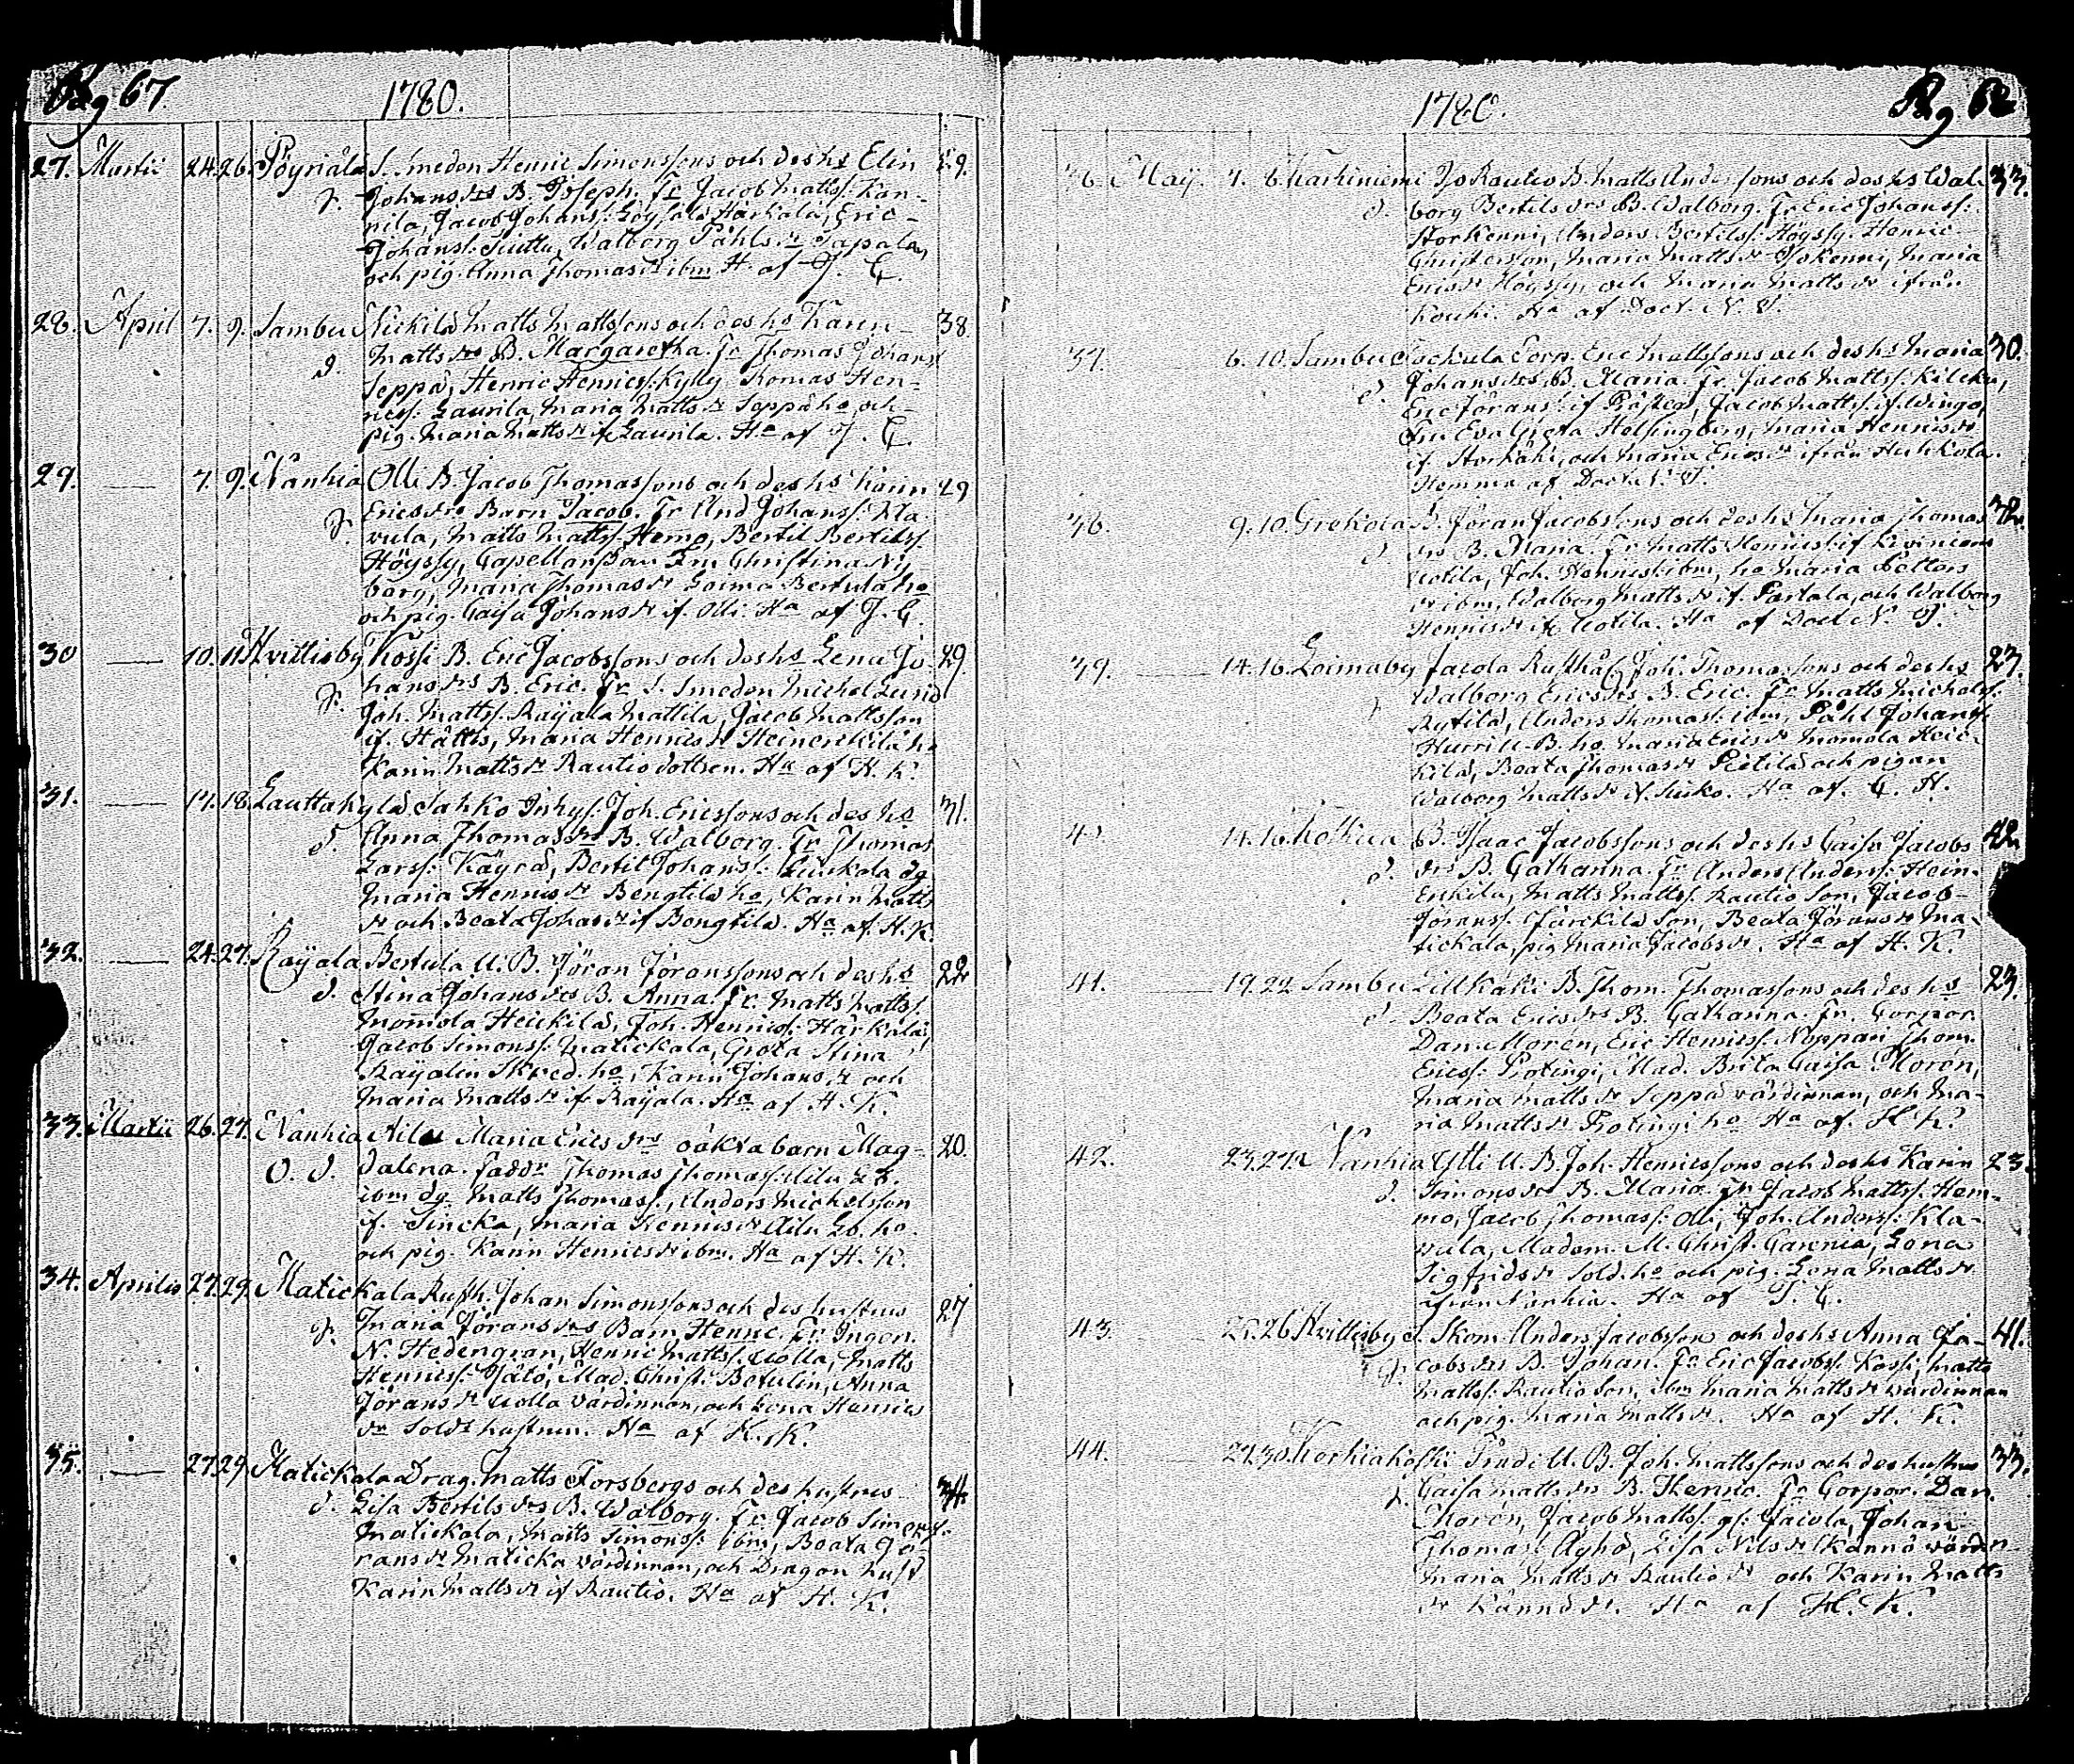 Pag 67
1780.
27. Martii 24. 26. Pöyriälä S. Smeden Henric Simonssons och des hs Elin 29.
Johans drs B. Joseph. Fr Jacob Mattss. Kan-
nila, Jacob Johanss. Härkälä, Eric
Johanss. Walborg Påhls dr
och pig. Anna Thomas dr ibm H. af J. C.
28. April 7. 9. Sambu Nickilä Matts Mattssons och des hs Karin 38
d. Matts drs B. Margaretha. Fr Thomas Johanss
Seppä, Henric Henricss. Kylly Tomas Hen-
ricss. Laurila, Maria Matts dr Seppä ho, och
pig. Maria Matts dr if. Laurila. Ha af J. C.
29. — 7. 9. Nanhia Olli B. Jacob Thomassons och des hs Karin 29
Erics drs Barn Jacob. Fr And Johanss. Kla-
vula, Matts Mattss. Hemo, Bertil Bertilss.
Höyssy, Capellans Fru Christina Ny-
borg, Maria Thomas dr Loima Bertula ho
och pig. Caisa Johans dr if. Olli. Ha af J. C.
30 — 10. 11. Hvittisby Kossi B. Eric Jacobssons och des hs Lena Jo- 29
hans drs B. Eric. Fr S. Smeden Michel Lund
Joh. Mattss. Raijala Mattila, Jacob Mattsson
if. Maria Henrics dr Heinenkilä ho
Karin Matts dr Rautio dottren. Ha af H. K.
31. — 17. 18. Lauttakylä Sahko Inhys. Joh. Ericssons och des hs 31.
d. Anna Thomas drs B. Walborg. Fr Thomas
Larss. Käyrä, Bertil Johanss. dg
Maria Henrics dr Bengtilä ho, Karin Matts
dr och Beata Johans dr if Bengtilä. Ha af. H. K.
32. — 24. 27. Raijala Bertula U. B. Jöran Jöranssons och des hs 22
d. Stina Johans drs B. Anna. Fr. Matts Mattss.
Mommola Heickilä, Joh. Henricss. Härkälä,
Jacob Simonss. Matickala, Greta Stina
Raijalin Skred. ho, Karin Johans dr och
Maria Matts dr if Raijala. Ha af H. K.
33. Martii 26. 27. Nanhia Ailu Maria Erics drs oäkta barn Mag- 20.
O. d. dalena. Faddr Thomas Thomass. Ailu
ibm dg Matts Thomass., Anders Michelsson
if. Sincka, Maria Henrics dr Ailu Lb. ho
och pig. Karin Henrics dr ibm. Ha af H. K.
34. Aprilis 27. 29. Matickala Rusth. Johan Simonssons och des hustrus 27
Maria Jörans drs Barn Henric. Fr. Ingen.
N. Hedengran, Henric Mattss. Uolla, Matts
Henricss. Mad. Christ. Botulin, Anna
Jörans dr Uolla värdinnan, och Lena Henrics
dr Solds hustrun. Ha af H. K.
35. — 27. 29. Matickala Drag. Matts Forsbergs och des hustrus 34
d. Lisa Bertils drs B. Walborg. Fr Jacob Simonss.
Matickala, Matts Simonss. ibm, Beata Jö-
rans dr Maticka värdinnan, och Dragon hust
Karin Matts dr if Rautio. Ha af H. K.
1780.
Pag. 68
36. Maij. 4. 6. Karhiniemi Iso Rautio B. Matts Anderssons och des hs Wal- 33.
d. borg Bertils drs B. Walborg. Fr Eric Johanss.
Storkenni, Anders Bertilss. Höyssy. Henric
Christersson, Maria Matts dr Isokenni, Maria
Erics dr Höyssy, och Maria Matts dr ifrån
Kouhi. Ha af Doct. N. I.
37. 6. 10. Sambu Corp. Eric Mattssons och des hs Maria 30.
d. Johans drs B. Maria. Fr. Jacob Mattss. Kilcku,
Eric Jöranss. if Jacob Mattss. if. Wingo,
Fru Eva Greta Helsingberg, Maria Henrics dr
if. Storkäki, och Maria Erics dr ifrån Huhkola.
Hemma af Doct. N. I.
38. 9. 10. Grekola B. Jöran Jacobssons och des hs Maria Thomas 32
d. drs B. Maria. Fr. Matts Henricss. if
Uotila, Joh. Henricss. ibm, ho Maria
dr ibm, Walborg Matts dr if. Partala, och Walborg
Henrics dr if Uotila. Ha af Doct N. I.
39. — 14. 16. Loimaby Jacola Rusthål. Joh. Thomassons och des hs 23.
Walborg Erics drs B. Eric. Fr Matts Michelss.
Rutila, Anders Thomass. ibm, Påhl Johanss.
Hurri U. B. ho Maria Erics dr Mommola Heic-
kilä, Beata Thomas dr Pietilä och pigan
Walborg Matts dr if. Ha af. C. H.
40. — 14. 16. B. Isaac Jacobssons och des hs Caisa Jacobs 42
d. drs B. Catharina. Fr Anders Anderss. Hein-
Enkila, Matts Mattss. Rautio Son, Jacob
Jöranss. Son, Beata Jörans dr Ma-
tickala, pig Maria Jacobs dr. Ha af H. K.
41. — 19. 22 Sambu Lillkäki B. Thom. Thomassons och des hs 23.
d. Beata Erics drs B. Catharina. Fr. Corpor.
Dan. Morén, Eric Henricss. Noppari Thom.
Ericss. Protingi, Mad. Brita Caisa Morén,
Maria Matts dr Seppä värdinnan, och Ma-
ria Matts dr Protingi ho Ha af. H. K.
42. — 23. 27. Nanhia Ytti U. B. Joh. Henricssons och des hs Karin 23.
d. Simons drs B. Maria. Fr Jacob Mattss. Hem-
mo, Jacob Thomass. Olli, Joh. Anderss. Kla-
vula, Madam. M. Christ. Lena
Sigfrids dr Sold. ho och pig. Lena Matts dr
ifrån Nanhia. Ha af J. C.
43. 25. 26 Hvittisby S. Skom. Anders Jacobssons och des hs Anna Ja- 41.
cobs drs B. Johan. Fr Eric Jacobss. Kossi, Matts
Mattss. Rautio Son, ibm Maria Matts dr värdinnan
och pig. Maria Matts dr. Ha af H. K.
44. — 29. 30. Korkiakoski U. B. Joh. Mattssons och des hustrus 33.
Caisa Matts drs B. Henric. Fr Corpor. Dan.
Morén, Jacob Mattss. Johan
Thomass. Äyhö, Lisa Nils dr Kännö värdin
Maria Matts dr Rautio dr och Karin Matts
dr Kännö dr. Ha af H. K.